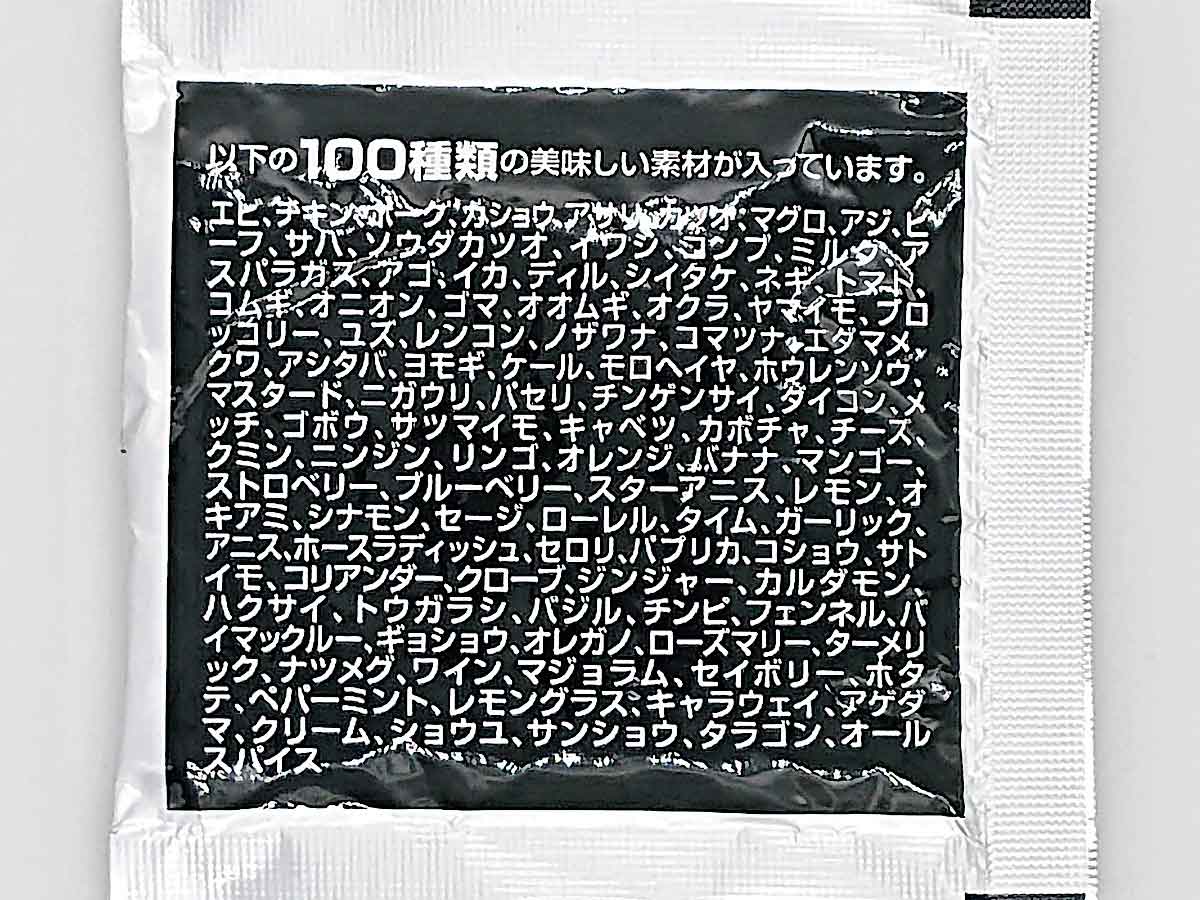 以下の100種類の美味しい素材が入っています。
エビ、チキン、ポーク、カショウ、アサリ、カツオ、マグロ、アジ、ビ
ーフ、サバ、ソウダカツオ、イワシ、コンブ、ミルク、ア
スパラガス、アゴ、イカ、ディル、シイタケ、ネギ、トマト、
コムギ、オニオン、ゴマ、オオムギ、オクラ、ヤマイモ、ブロ
ッコリー、ユズ、レンコン、ノザワナ、コマツナ、エダマメ、
クワ、アシタバ、ヨモギ、ケール、モロヘイヤ、ホウレンソウ、
マスタード、ニガウリ、パセリ、チンゲンサイ、ダイコン、メ
ッチ、ゴボウ、サツマイモ、キャベツ、カボチャ、チーズ、
クミン、ニンジン、リンゴ、オレンジ、バナナ、マンゴー、
ストロベリー、ブルーベリー、スターアニス、レモン、オ
キアミ、シナモン、セージ、ローレル、タイム、ガーリック、
アニス、ホースラディッシュ、セロリ、パプリカ、コショウ、サト
イモ、コリアンダー、クローブ、ジンジャー、カルダモン、
ハクサイ、トウガラシ、バジル、チンピ、フェンネル、バ
イマックルー、ギョショウ、オレガノ、ローズマリー、ターメリ
ック、ナツメグ、ワイン、マジョラム、セイボリー、ホタ
テ、ペパーミント、レモングラス、キャラウェイ、アゲダ
マ、クリーム、ショウユ、サンショウ、タラゴン、オール
スパイス